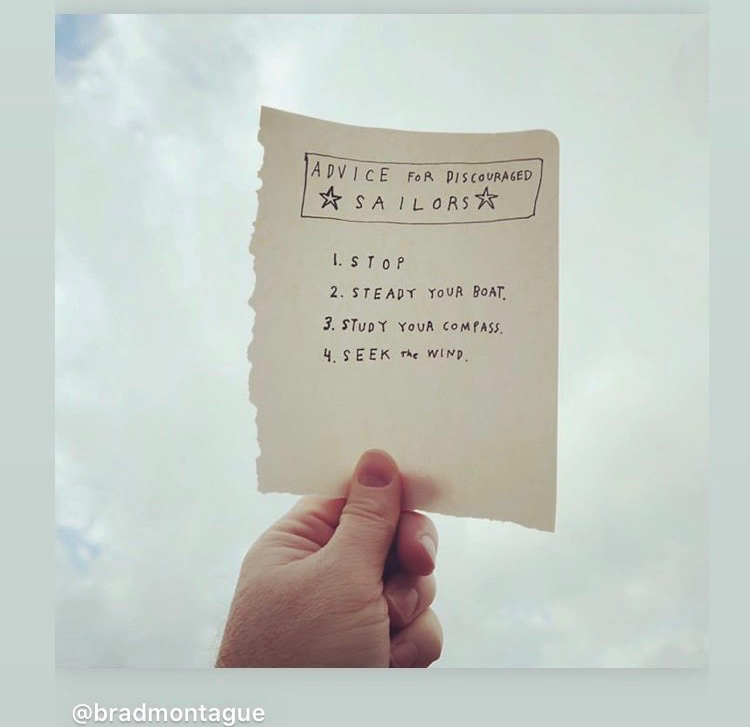 ADVICE FOR DISCOURAGED
☆ SAILORS ☆
1. STOP
2. STEADY YOUR BOAT.
3. STUDY YOUR COMPASS.
4. SEEK the WIND.
@bradmontague